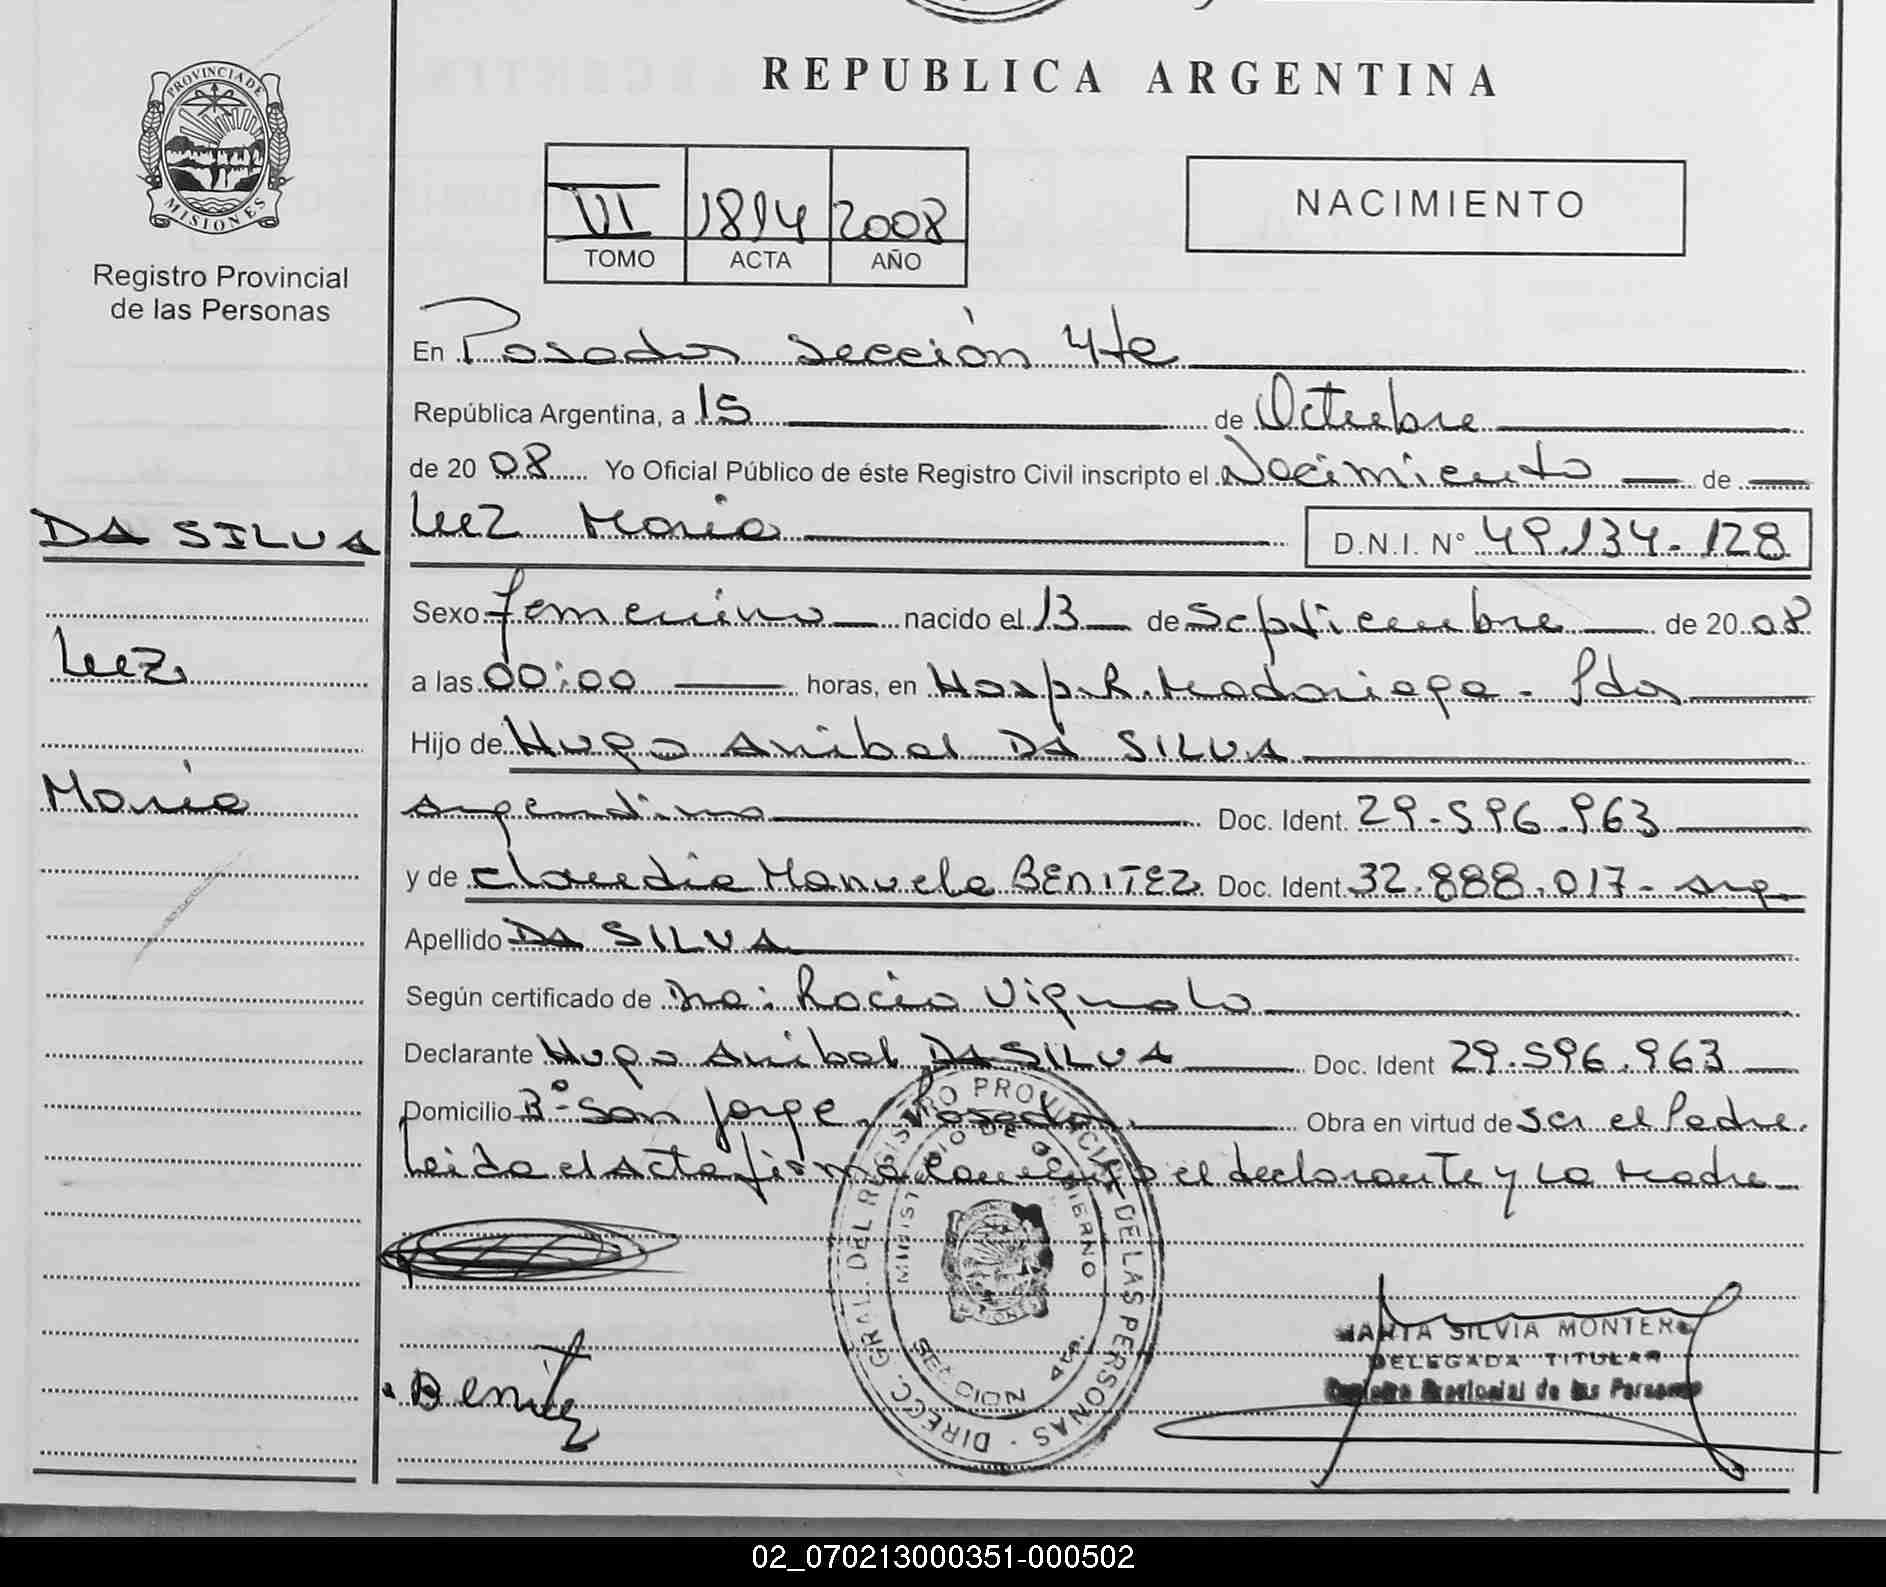 REPUBLICA ARGENTINA
PROVINCIA DE
MISIONES
Registro Provincial
de las Personas
VI 1814 2008
TOMO ACTA AÑO
NACIMIENTO
En Posadas sección 4ta
República Argentina, a 15 de Octubre
de 20 08 Yo Oficial Público de éste Registro Civil inscripto el Nacimiento de
DA SILVA
Luz María
D.N.I. N° 49.134.128
Sexo femenino nacido el 13 de Septiembre de 20 08
Luz
a las 00:00 horas, en Hosp. R. Madariaga - Pdas
Hijo de Hugo Anibal DA SILVA
María
argentino Doc. Ident. 29.596.963
y de Claudia Manuela BENITEZ Doc. Ident. 32.888.017 - arg
Apellido DA SILVA
Según certificado de Dra: Rocío Vignolo
Declarante Hugo Anibal DA SILVA Doc. Ident 29.596.963
Domicilio B° San Jorge, Posadas. Obra en virtud de ser el Padre.
Leida el Acta firma conmigo el declarante y la madre
DIRECC. GRAL. DEL REGISTRO PROVINCIAL DE LAS PERSONAS
MINISTERIO DE GOBIERNO
SECCION 4ta.
Benitez
MARTA SILVIA MONTERO
DELEGADA TITULAR
Registro Provincial de las Personas
02_070213000351-000502